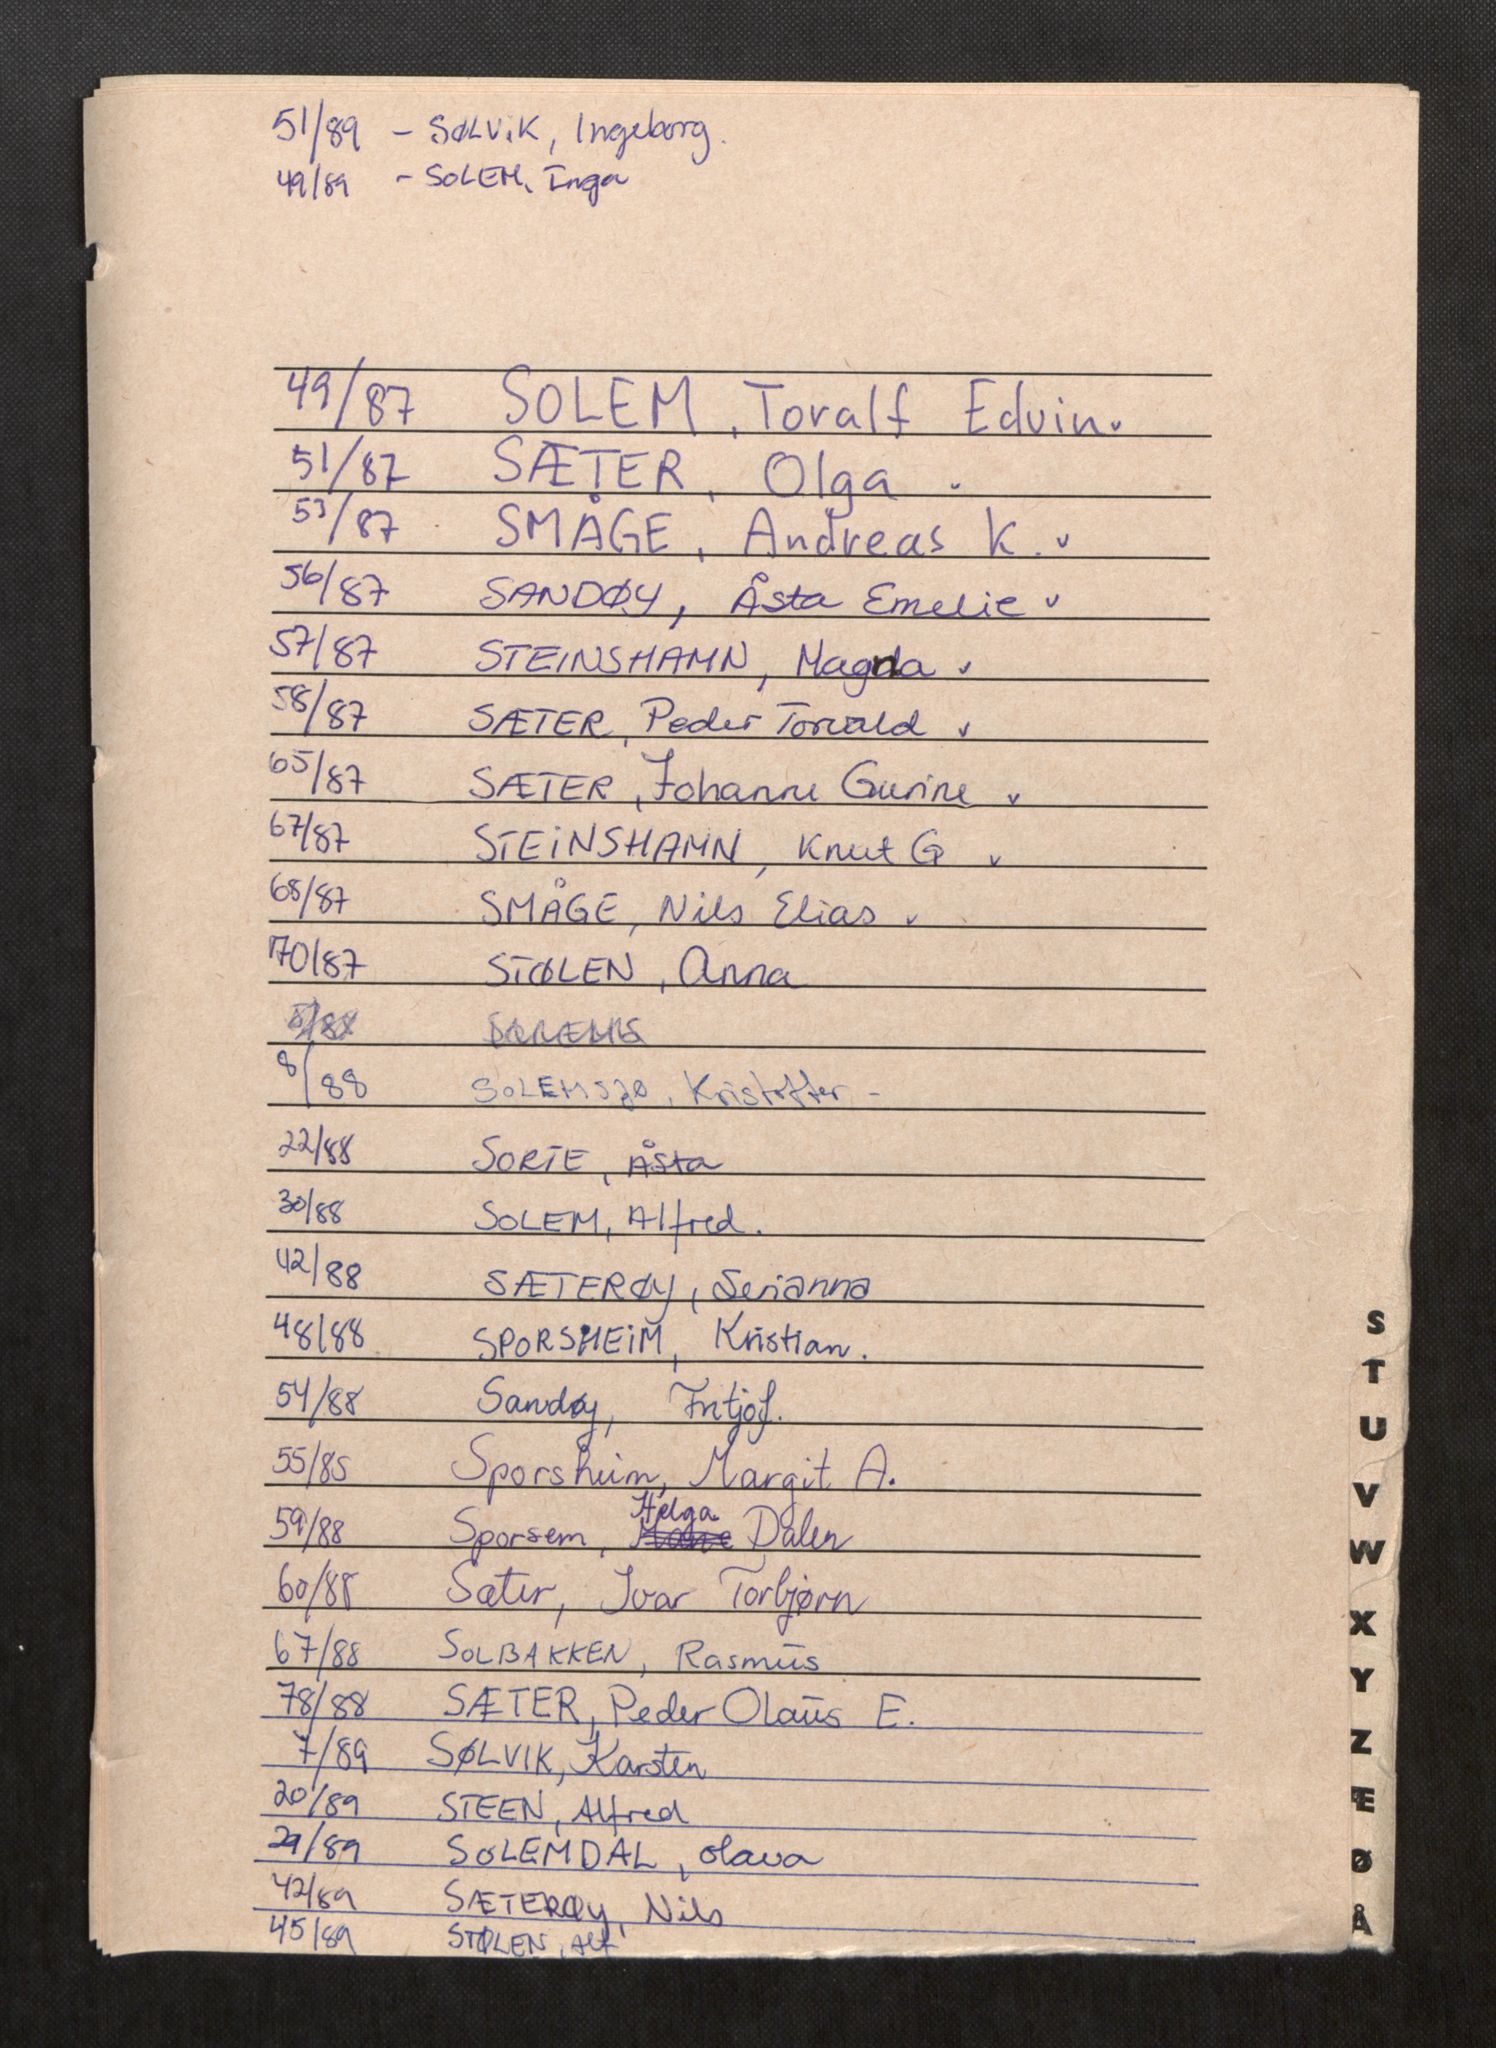 51/89 - SØLVIK, Ingeborg.
49/89 - SOLEM, Inga
49/87 SOLEM, Toralf Edvin.
51/87 SÆTER, Olga
53/87 SMÅGE, Andreas K.
56/87 SANDØY, Åsta Emelie
57/87 STEINSHAMN, Magda
58/87 SÆTER, Peder Torvald
65/87 SÆTER, Johanne Gurine
67/87 STEINSHAMN, Knut G
68/87 SMÅGE, Nils Elias
70/87 STØLEN, Anna
8/88
8/88 SOLEMSJØ, Kristoffer -
22/88 SORTE, Åsta
30/88 SOLEM, Alfred.
42/88 SÆTERØY, Serianna
48/88 SPORSHEIM, Kristian.
54/88 Sandøy, Fritjof.
55/88 Sporsheim, Margit A.
59/88 Sporsem, Helga Dalen
60/88 Sæter, Ivar Torbjørn
67/88 SOLBAKKEN, Rasmus
78/88 SÆTER, Peder Olaus E.
7/89 SØLVIK, Karsten
20/89 STEEN, Alfred
29/89 SOLEMDAL, Olava
42/89 SÆTERØY, Nils
45/89 STØLEN, Alf
S
T
U
V
W
X
Y
Z
Æ
Ø
Å